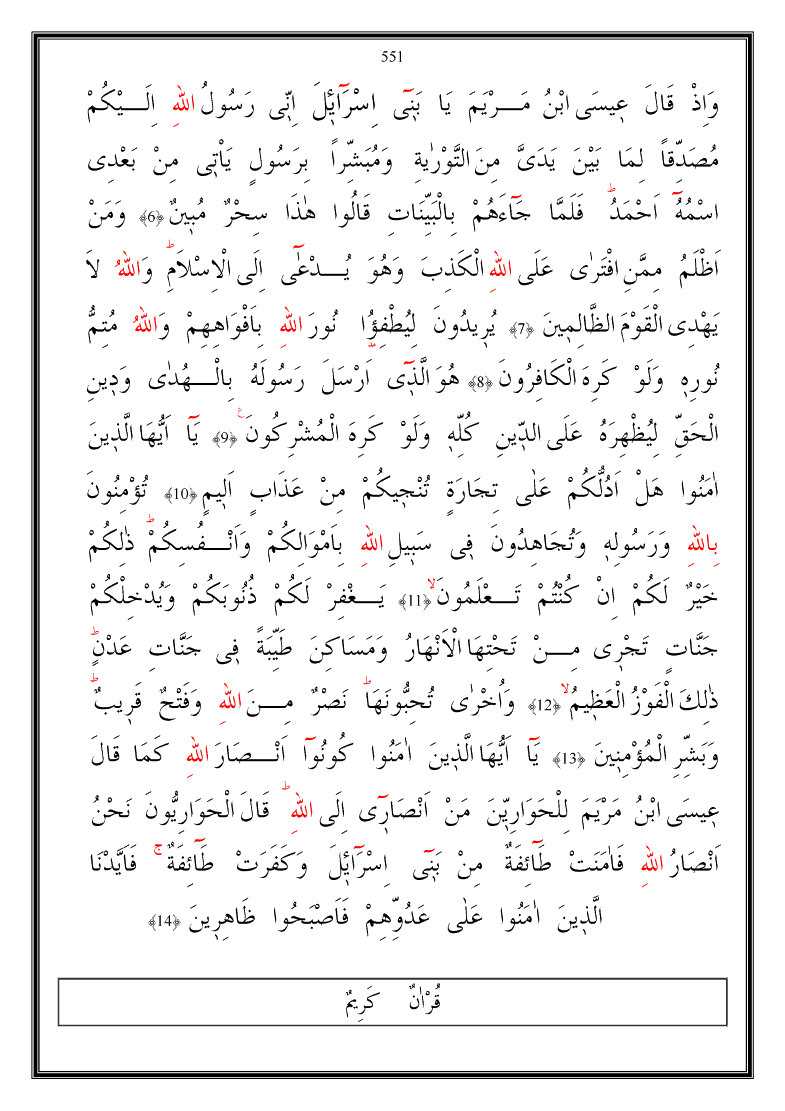 551
وَاِذْ قَالَ عٖيسَى ابْنُ مَـــرْيَمَ يَا بَنٖٓى اِسْرَٓائٖلَ اِنّٖى رَسُولُ اللّٰهِ اِلَـــيْكُمْ
مُصَدِّقاً لِمَا بَيْنَ يَدَىَّ مِنَ التَّوْرٰيةِ وَمُبَشِّراً بِرَسُولٍ يَاْتٖى مِنْ بَعْدِى
اسْمُهُٓ اَحْمَدُ ؕ فَلَمَّا جَٓاءَهُمْ بِالْبَيِّنَاتِ قَالُوا هٰذَا سِحْرٌ مُبٖينٌ ﴿6﴾ وَمَنْ
اَظْلَمُ مِمَّنِ افْتَرٰى عَلَى اللّٰهِ الْكَذِبَ وَهُوَ يُـــدْعٰٓى اِلَى الْاِسْلَامِ ؕ وَاللّٰهُ لَا
يَهْدِى الْقَوْمَ الظَّالِمٖينَ ﴿7﴾ يُرٖيدُونَ لِيُطْفِؤُ۫ا نُورَ اللّٰهِ بِاَفْوَاهِهِمْ وَاللّٰهُ مُتِمُّ
نُورِهٖ وَلَوْ كَرِهَ الْكَافِرُونَ ﴿8﴾ هُوَ الَّذٖٓى اَرْسَلَ رَسُولَهُ بِالْـــهُدٰى وَدٖينِ
الْحَقِّ لِيُظْهِرَهُ عَلَى الدّٖينِ كُلِّهٖ وَلَوْ كَرِهَ الْمُشْرِكُونَ ࣖ ﴿9﴾ يَٓا اَيُّهَا الَّذٖينَ
اٰمَنُوا هَلْ اَدُلُّكُمْ عَلٰى تِجَارَةٍ تُنْجٖيكُمْ مِنْ عَذَابٍ اَلٖيمٍ ﴿10﴾ تُؤْمِنُونَ
بِاللّٰهِ وَرَسُولِهٖ وَتُجَاهِدُونَ فٖى سَبٖيلِ اللّٰهِ بِاَمْوَالِكُمْ وَاَنْـــفُسِكُمْ ؕ ذٰلِكُمْ
خَيْرٌ لَكُمْ اِنْ كُنْتُمْ تَـــعْلَمُونَ ۙ ﴿11﴾ يَـــغْفِرْ لَكُمْ ذُنُوبَكُمْ وَيُدْخِلْكُمْ
جَنَّاتٍ تَجْرٖى مِـــنْ تَحْتِهَا الْاَنْهَارُ وَمَسَاكِنَ طَيِّبَةً فٖى جَنَّاتِ عَدْنٍ ؕ
ذٰلِكَ الْفَوْزُ الْعَظٖيمُ ۙ ﴿12﴾ وَاُخْرٰى تُحِبُّونَهَا ؕ نَصْرٌ مِـــنَ اللّٰهِ وَفَتْحٌ قَرٖيبٌ ؕ
وَبَشِّرِ الْمُؤْمِنٖينَ ﴿13﴾ يَٓا اَيُّهَا الَّذٖينَ اٰمَنُوا كُونُٓوا اَنْـــصَارَ اللّٰهِ كَمَا قَالَ
عٖيسَى ابْنُ مَرْيَمَ لِلْحَوَارِيّٖنَ مَنْ اَنْصَارٖٓى اِلَى اللّٰهِ ؕ قَالَ الْحَوَارِيُّونَ نَحْنُ
اَنْصَارُ اللّٰهِ فَاٰمَنَتْ طَٓائِفَةٌ مِنْ بَنٖٓى اِسْرَٓائٖلَ وَكَفَرَتْ طَٓائِفَةٌ ۚ فَاَيَّدْنَا
الَّذٖينَ اٰمَنُوا عَلٰى عَدُوِّهِمْ فَاَصْبَحُوا ظَاهِرٖينَ ﴿14﴾
قُرْاٰنٌ كَرٖيمٌ